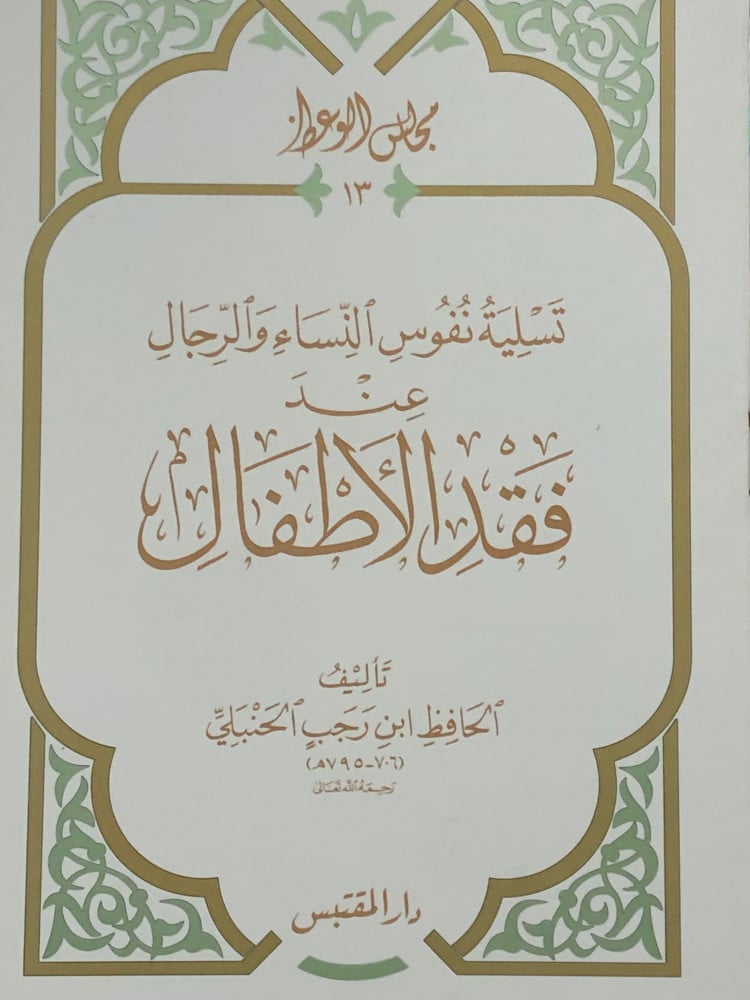 مجالس الوعظ
١٣
تَسْلِيَةُ نُفُوسِ ٱلنِّسَاءِ وَٱلرِّجَالِ
عِنْدَ
فَقْدِ الأَطْفَالِ
تَأْلِيْفُ
ٱلحَافِظِ ابنِ رَجَبٍ ٱلحَنْبَلِيِّ
(٧٠٦-٧٩٥هـ)
رَحِمَهُ اللهُ تَعَالَى
دار المقتبس